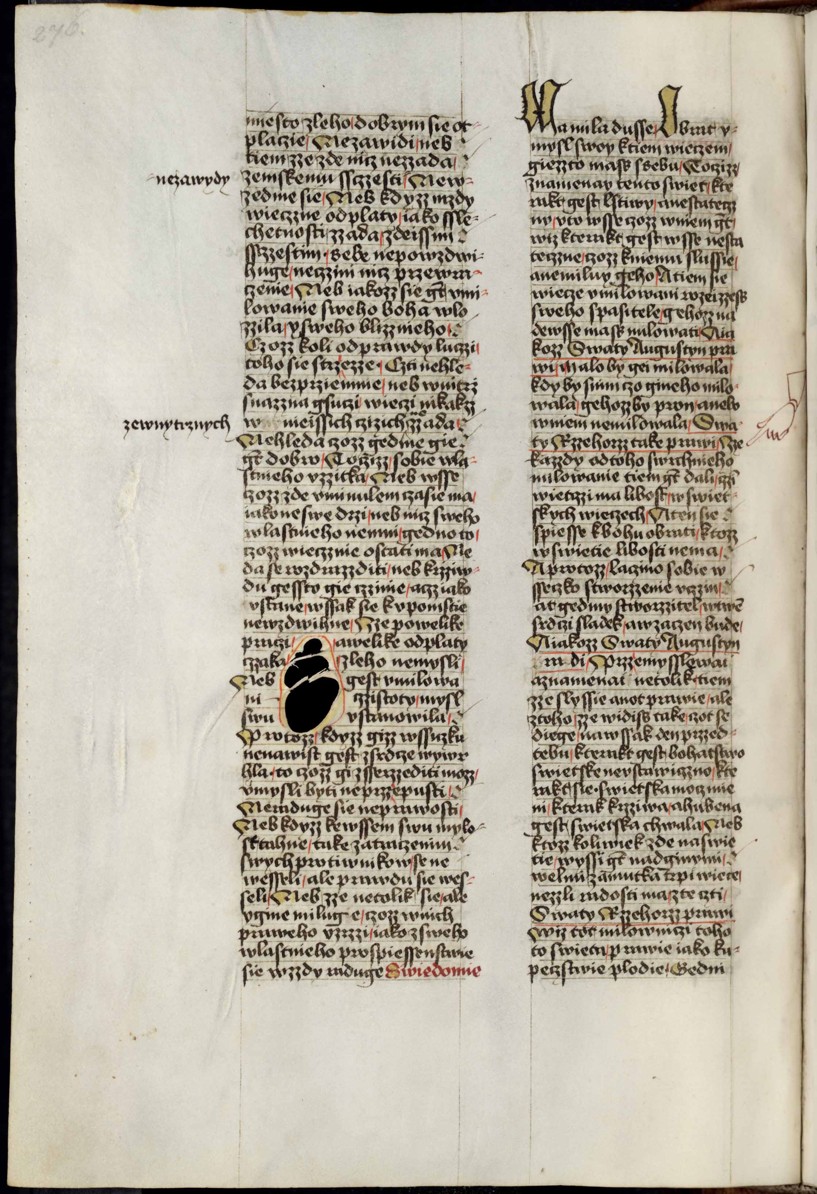 276.
miesto zleho dobrym sie ot
placie Nezawidi neb
tiem zze zde nicz nezzada
nezawydy
zemskemu sscziesti New
zedme sie Neb kdyzz mzdy
wieczne odplaty iako ssle
chetnosti zzada zdeissim
ssczestim sebe nepowzdwi
huge neczini nicz przewra
czenie Neb iakozz sie gt vmi
lowanie sweho boha wlo
zzila y sweho blizznieho
Czozz koli od prawdy luczi
toho sie strzezze Czti nehle
da bezprziemnie neb wnitrz
snazzna gsuczi wieczi nikakz
zewnytrznych
w nieissich czizich zzada
Nehleda czozz gedine gie
gt dobro Toczizz sobie wla
stnieho vzzitka Neb wsse
czozz zde vminulem czasie ma
iako ne swe drzi neb nicz sweho
wlastnieho nemni gedno to
czozz wiecznie ostati ma Ne
da se wzdrazzditi neb krziw
du gessto gie czinie aczz iako
vstane wssak sie k pomstie
newzdwihne Zze powelike
praczi awelike odplaty
czaka zleho nemysli
Neb gest vmilowa
ni czzistoty mysl
swu vstanowila
Protozz kdyzz gizz wssiczku
nenawist gest zsrdcze wywr
hla to czozz gi zsserzzediti mozz
vmysli byti neprzepusti
Neraduge sie neprawosti
Neb kdyzz kewssem swu mylo
st tahne take zatraczenim
swych protiwnikow se ne
wesseli ale prawdu sie wes
seli Neb zze netolik sie ale
ygine miluge czozz wnich
praweho vzrzi iako zsweho
wlastnieho prospiessenstwie
sie wzzdy raduge Swiedomie
Ma mila dusse Obrat y
mysl swoy ktiem wieczem
giezzto mass ssebu Toczizz
znamenay tento swiet kte
rakt gest lstiwy anestatecz
ny yto wsse czozz wniem gt
wiz kterakt gest wsse nesta
teczne czozz kniemu slussie
anemiluy geho Atiem sie
wiecze vmilowani rozeizzess
sweho spasitele gehozz na
dewsse mass milowati Nia
kozz Swaty Augustyn pra
wi Malo by gei milowala
kdy by snim czo gineho milo
wala gehozz by pron anebo
wniem nemilowala Swa
ty Rzzehorzz take prawi Zze
kazzdy odtoho swrchnieho
milowanie tiem gt dali czi
wietczi ma libost wswiet
skych wieczech Aten sie
spiesse kbohu obrati ktozz
wswietie libosti nema
A protozz laczino sobie w
sseczko stworzzenie vczin
at gediny stworzzitel wtwe
srdczi sladek awzaczen bude
Niakozz Swaty Augustyn
ra di Przemysslowai
aznamenai netolik tiem
zze slyssie anot prawie ale
ztoho zze widiss take czot se
diege nawssak den przed
tebu kterakt gest bohatstwo
swietske nevstawiczno kte
rakt sie swietska mocz mie
ni kterak krziwa ahubena
gest swietska chwala Neb
ktozz koliwiek zde naswie
tie wyssi gt nadginymi
welmi zamutka trpi wiecze
nezzli radosti ma zte czti
Swaty Rzzehorzz prawi
Wiz tot milowniczi toho
to swieta prawie iako ku
peczstwie plodie Gedni